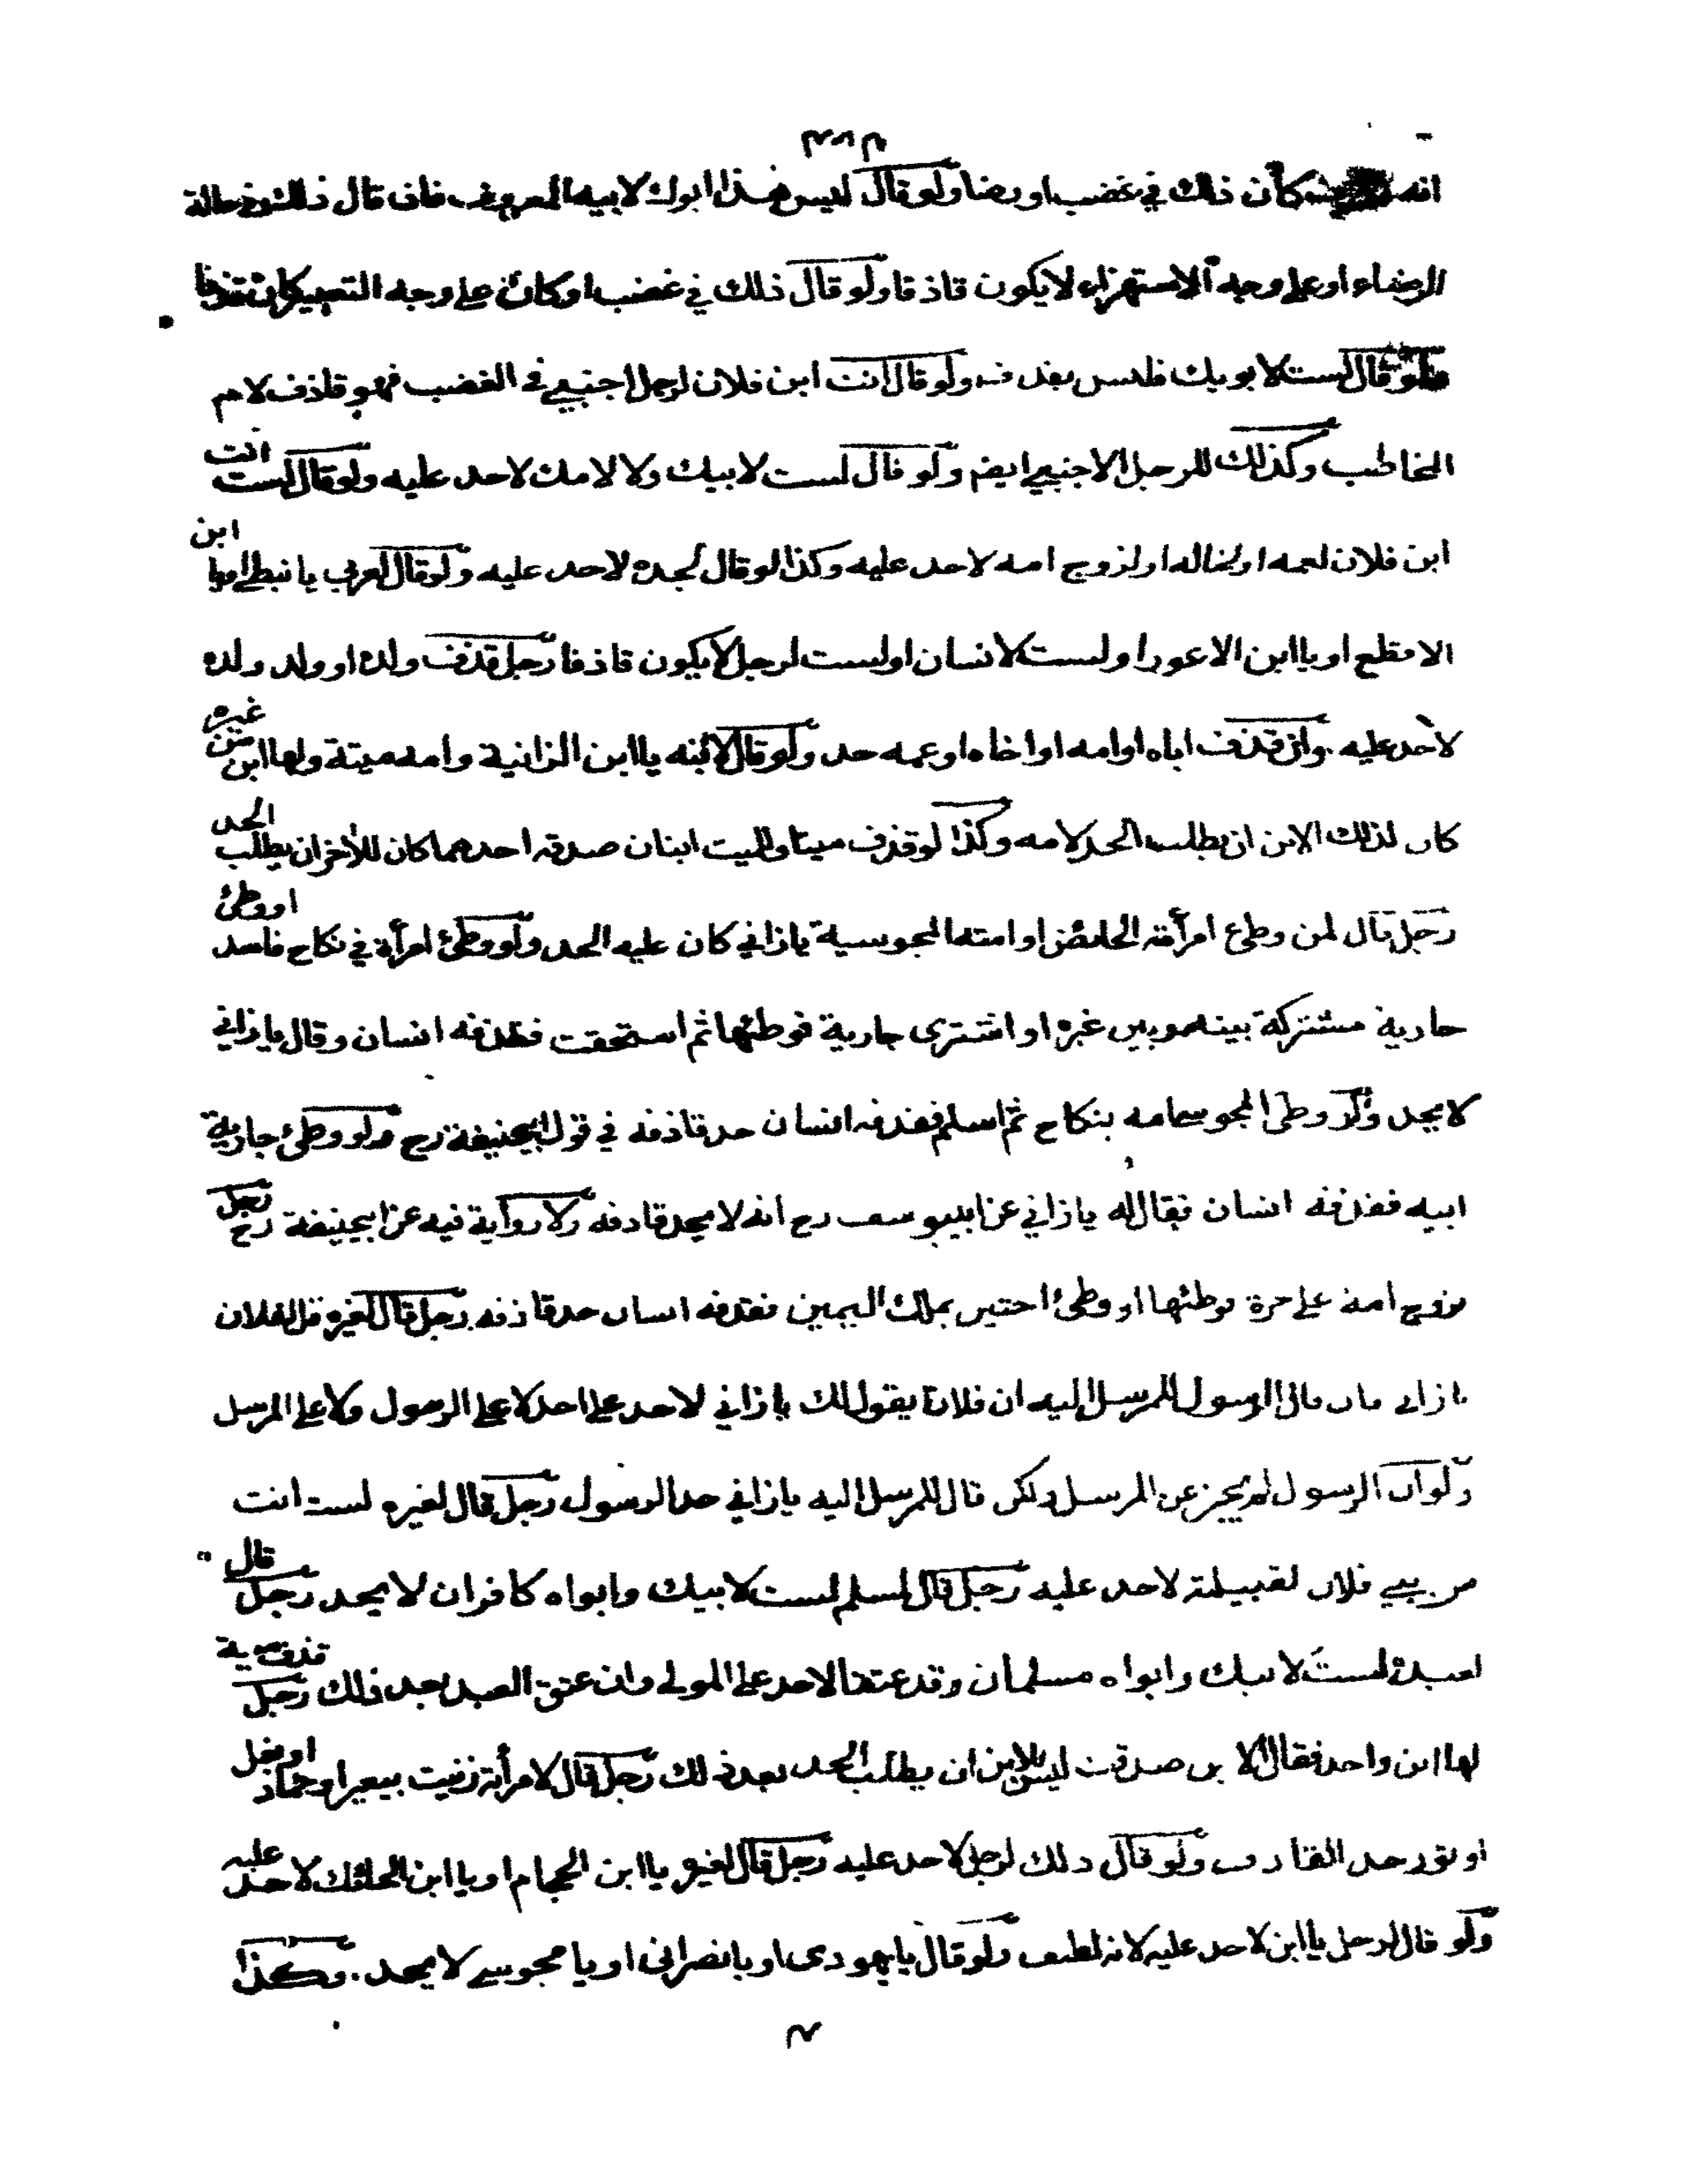 انه كان ذلك في غضب او رضا ولو قال ليس هذا ابوك لابيه المعروف فان قال ذلك في حالة
الرضاء او على وجه الاستهزاء لا يكون قاذفا ولو قال ذلك في غضب او كان على وجه التعيير كان قذفا
ولو قال لست لابويك فليس بقذف ولو قال انت ابن فلان لرجل اجنبي في الغضب فهو قاذف لام
المخاطب وكذلك للرجل الاجنبي ايضم ولو قال لست لابيك ولا لامك لاحد عليه ولو قال لست انت
ابن فلان لعمه او لخاله او لزوج امه لاحد عليه وكذا لو قال لجده لاحد عليه ولو قال لعربي يا نبطي او يا ابن
الاقطع او يا ابن الاعور او لست لانسان او لست لرجل لا يكون قاذفا رجل قذف ولده او ولد ولده
لاحد عليه وان قذف اباه او امه او اخاه او عمه حد ولو قال لابنه يا ابن الزانية وامه ميتة ولها ابن من غيره
كان لذلك الابن ان يطلب الحد لامه وكذا لو قذف ميتا وللميت ابنان صدقه احدهما كان للاخر ان يطلب الحد
رجل قال لمن وطئ امرأته الحائض او امته المجوسية يا زاني كان عليه الحد ولو وطئ امرأة في نكاح فاسد او وطئ
جارية مشتركة بينه وبين غيره او اشترى جارية فوطئها ثم استحقت فقذفه انسان وقال يا زاني
لا يحد ولو وطئ المجوسي امه بنكاح ثم اسلم فقذفه انسان حد قاذفه في قول ابيحنيفة رح ولو وطئ جارية
ابيه فقذفه انسان فقال له يا زاني عن ابييوسف رح انه لا يحد قاذفه ولا رواية فيه عن ابيحنيفة رح رجل
تزوج امة على حرة فوطئها او وطئ اختين بملك اليمين فقذفه انسان حد قاذفه رجل قال لغيره قل لفلان
يا زاني فان قال الرسول للمرسل اليه ان فلانا يقول لك يا زاني لاحد على احد لا على الرسول ولا على المرسل
ولو ان الرسول لم يخبر عن المرسل ولكن قال للمرسل اليه يا زاني حد الرسول رجل قال لغيره لست انت
من بني فلان لقبيلته لاحد عليه رجل قال لمسلم لست لابيك وابواه كافران لا يحد رجل قال
لعبده لست لابيك وابواه مسلمان وقد عتقا لاحد على المولى وان عتق العبد بعد ذلك رجل قذف ميتة
لها ابن واحد فقال الابن صدقت ليس للابن ان يطلب الحد بعد ذلك رجل قال لامرأة زنيت ببعير او حمار او بغل
او ثور حد القاذف ولو قال ذلك لرجل لاحد عليه رجل قال لغيره يا ابن الحجام او يا ابن الحائك لاحد عليه
ولو قال لرجل يا ابن لاحد عليه لانه لطف ولو قال يا يهودى او يا نصرانى او يا مجوسي لا يحد وكذا